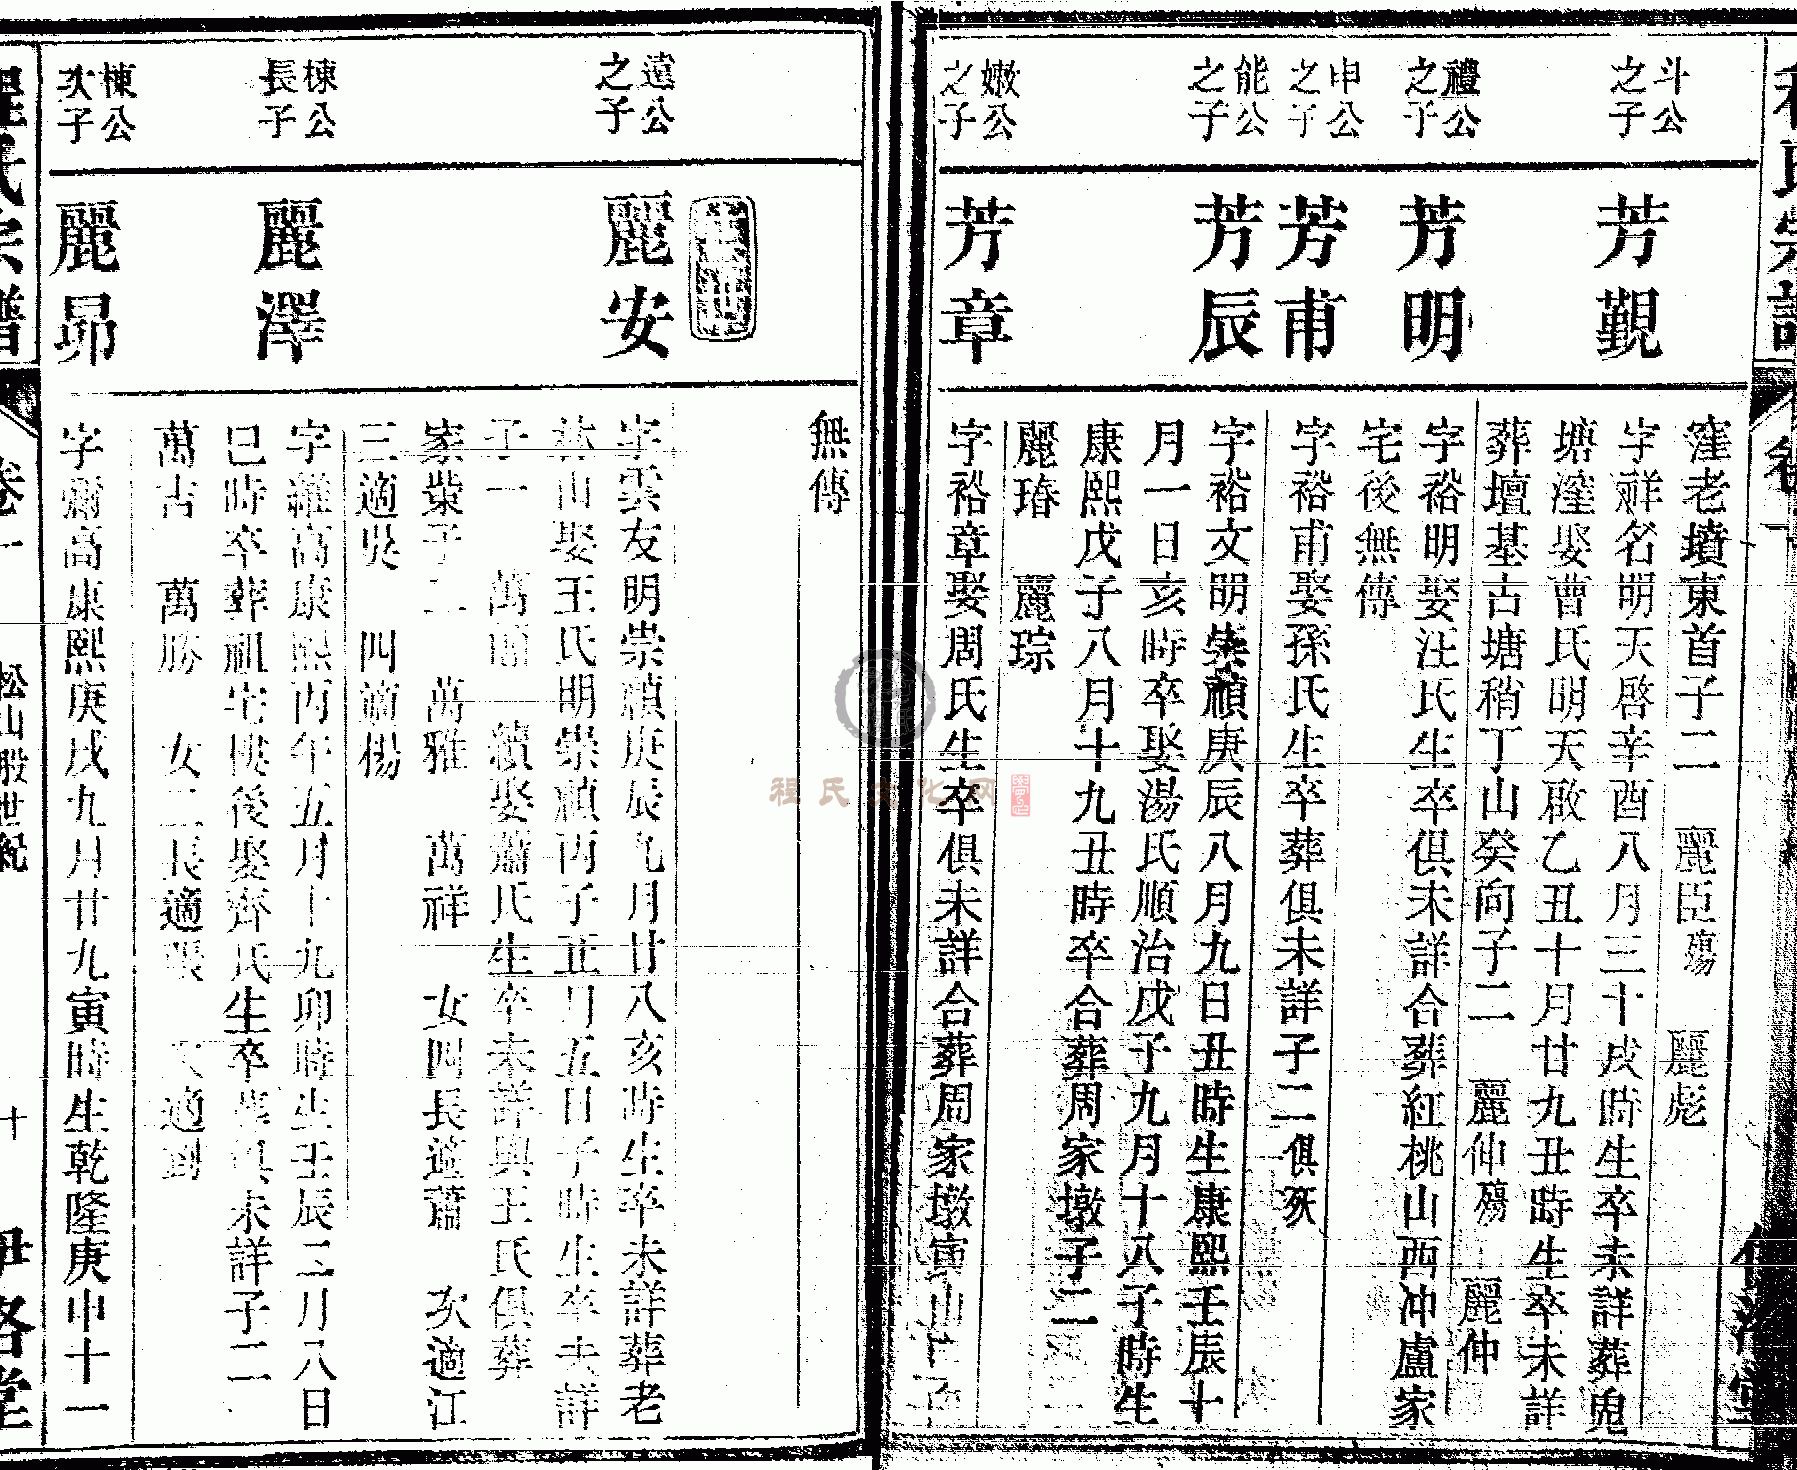 程氏宗譜
斗公之子
芳觐
窪老墳東首子二 麗臣殤 麗彪
字祥名明天啓辛酉八月三十戌時生卒未詳葬鬼
塘窪娶曹氏明天啟乙丑十月廿九丑時生卒未詳
葬壇基古塘稍丁山癸向子二 麗仰殤 麗仲
禮公之子
芳明
字裕明娶汪氏生卒俱未詳合葬紅桃山西冲盧家
宅後無傳
申公之子
芳甫
字裕甫娶孫氏生卒葬俱未詳子二俱殀
能公之子
芳辰
字裕文明崇禎庚辰八月九日丑時生康熙壬辰十
月一日亥時卒娶湯氏順治戊子九月十八子時生
康熙戊子八月十九丑時卒合葬周家墩子二
麗瑃 麗琮
嫩公之子
芳章
字裕章娶周氏生卒俱未詳合葬周家墩寅山
無傳
遠公之子
麗安
字雲友明崇禎庚辰九月廿八亥時生卒未詳葬老
林山娶王氏明崇禎丙子正月五日子時生卒未詳
子一 萬 續娶蕭氏生卒未詳與王氏俱葬
家柴子二 萬雅 萬祥 女四長適蕭 次適江
三適吳 四適楊
棟公長子
麗澤
字維高康熙丙午五月十九卯時生壬辰二月八日
巳時卒葬祖宅樓後娶齊氏生卒葬俱未詳子二
萬古 萬勝 女二長適張 次適劉
棟公次子
麗昴
字爾高康熙庚戌九月廿九寅時生乾隆庚申十一
程氏宗譜 卷一 松山股世紀 十 伊洛堂
程氏文化网